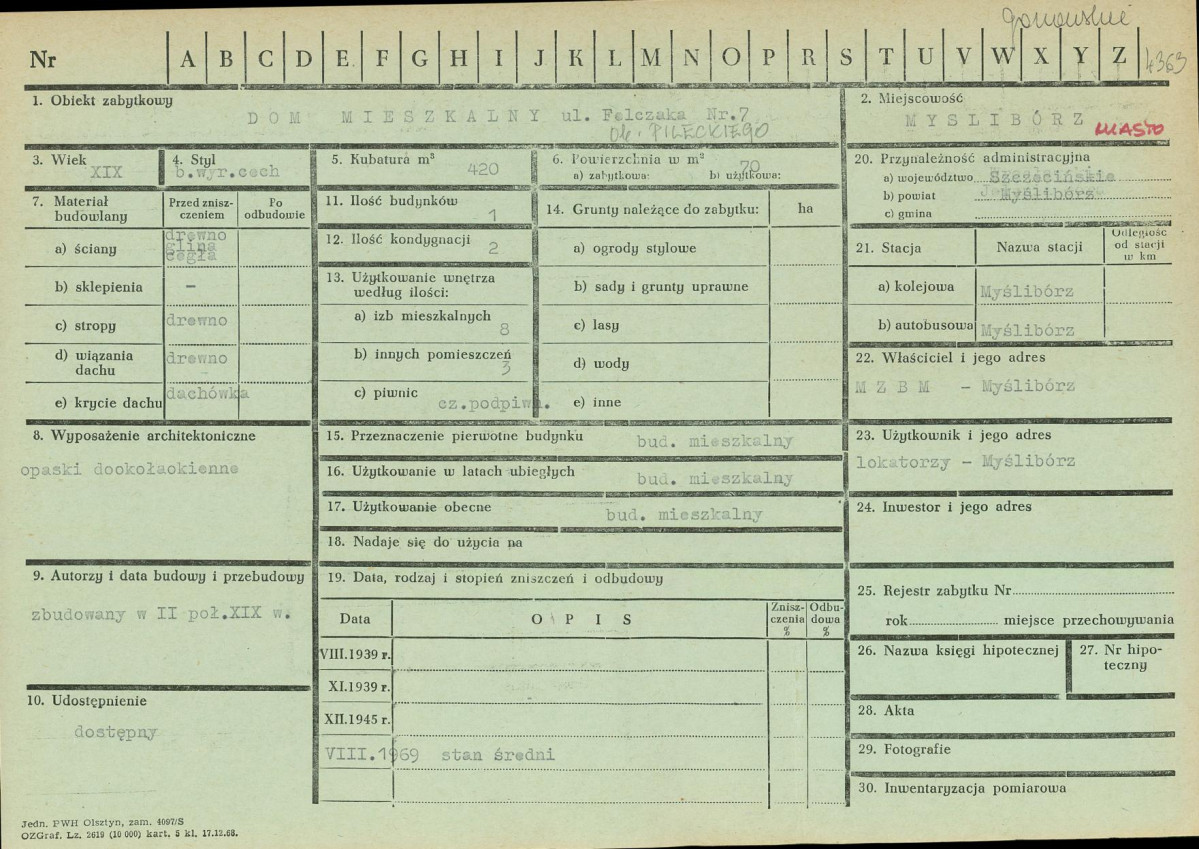 gorzowskie
Nr A B C D E F G H I J K L M N O P R S T U V W X Y Z 4363
1. Obiekt zabytkowy
DOM MIESZKALNY ul. Felczaka Nr.7
ob. PILECKIEGO
2. Miejscowość
MYSLIBÓRZ
MIASTO
3. Wiek
XIX
4. Styl
b.wyr.cech
5. Kubatura m³
420
6. Powierzchnia w m²
70
a) zabytkowa: b) użytkowa:
20. Przynależność administracyjna
a) województwo Szczecińskie
b) powiat Myślibórz
c) gmina
7. Materiał budowlany
Przed znisz-
czeniem
Po
odbudowie
a) ściany
drewno
glina
cegła
b) sklepienia –
c) stropy drewno
d) wiązania
dachu
drewno
e) krycie dachu dachówka
11. Ilość budynków
1
12. Ilość kondygnacji
2
13. Użytkowanie wnętrza
według ilości:
a) izb mieszkalnych
8
b) innych pomieszczeń
3
c) piwnic
cz.podpiwn.
14. Grunty należące do zabytku: ha
a) ogrody stylowe
b) sady i grunty uprawne
c) lasy
d) wody
e) inne
21. Stacja Nazwa stacji
Odległość
od stacji
w km
a) kolejowa Myślibórz
b) autobusowa Myślibórz
22. Właściciel i jego adres
M Z B M – Myślibórz
8. Wyposażenie architektoniczne
opaski dookołaokienne
15. Przeznaczenie pierwotne budynku bud. mieszkalny
16. Użytkowanie w latach ubiegłych bud. mieszkalny
17. Użytkowanie obecne bud. mieszkalny
18. Nadaje się do użycia na
23. Użytkownik i jego adres
lokatorzy – Myślibórz
24. Inwestor i jego adres
9. Autorzy i data budowy i przebudowy
zbudowany w II poł.XIX w.
10. Udostępnienie
dostępny
19. Data, rodzaj i stopień zniszczeń i odbudowy
Data OPIS
Znisz-
czenia
%
Odbu-
dowa
%
VIII.1939 r.
XI.1939 r.
XII.1945 r.
VIII.1969 stan średni
25. Rejestr zabytku Nr
rok miejsce przechowywania
26. Nazwa księgi hipotecznej
27. Nr hipo-
teczny
28. Akta
29. Fotografie
30. Inwentaryzacja pomiarowa
Jedn. PWH Olsztyn, zam. 4097/S
OZGraf. Lz. 2619 (10 000) kart. 5 kl. 17.12.68.